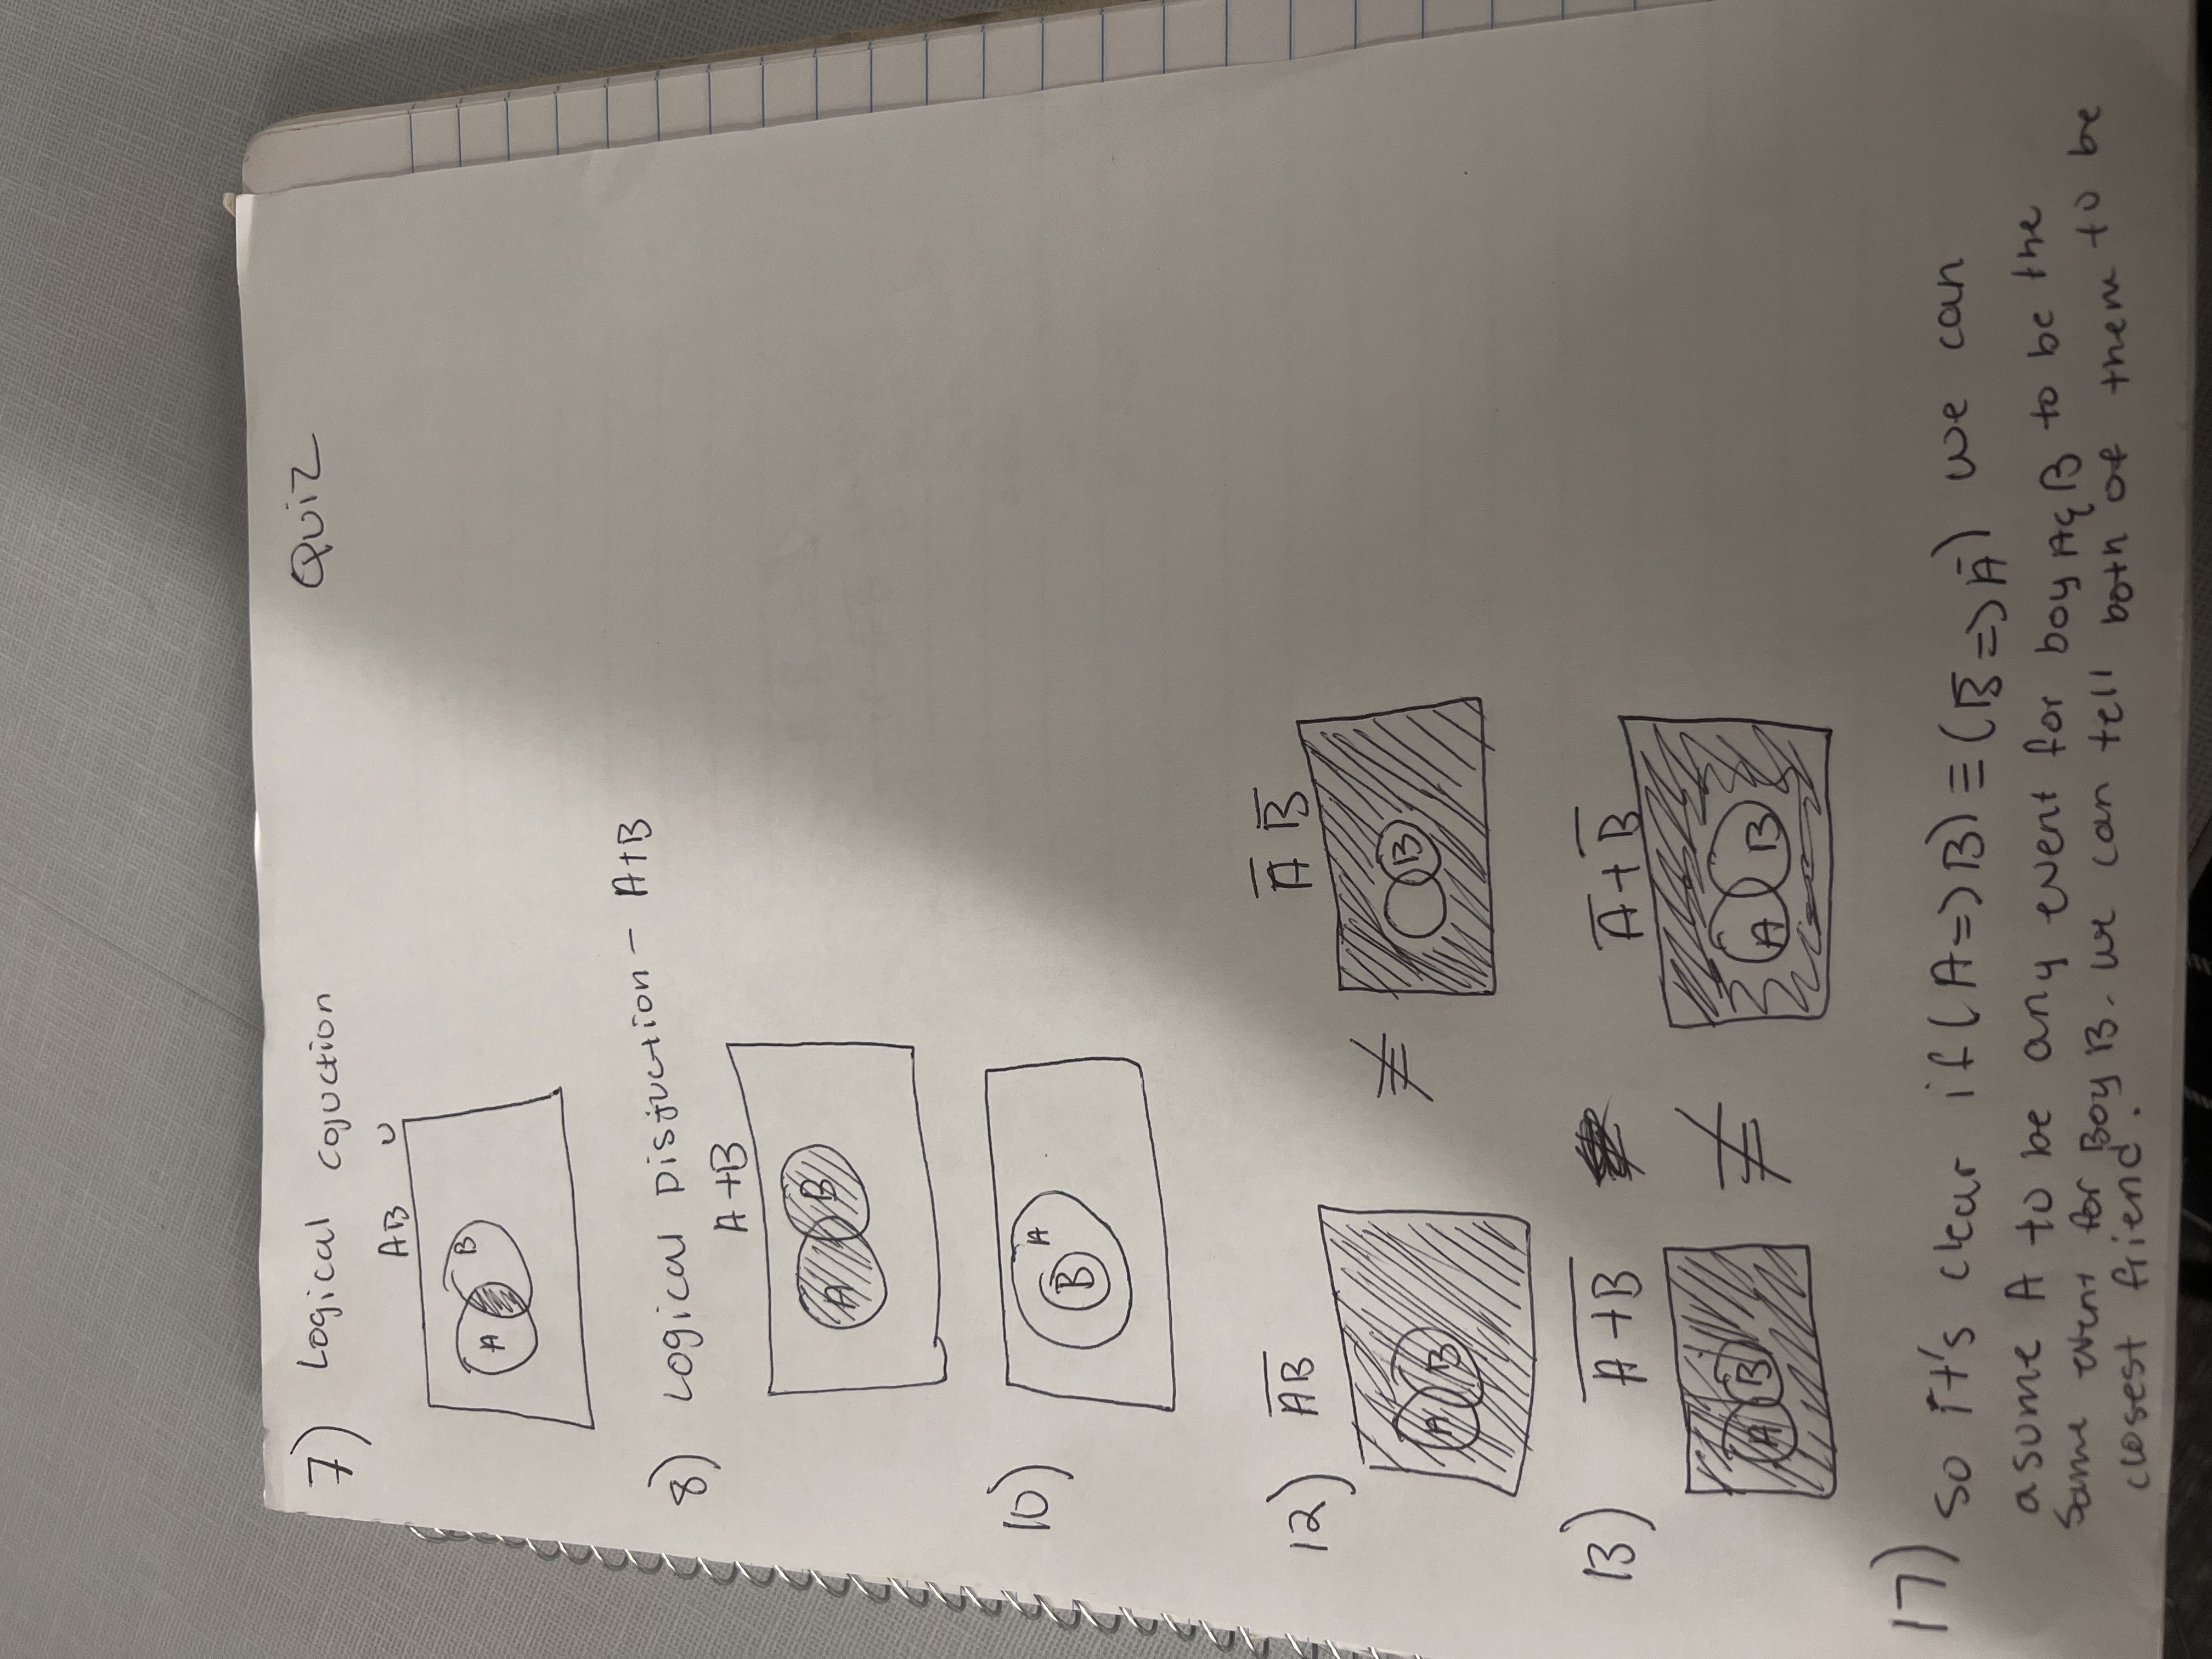 7) Logical cojuction QUIZ
AB U
A B
8) Logical Disjuction - A+B
A+B
A B
10)
A
B
12) A̅B̅ A̅ B̅
≠
A B B
13) A̅+̅B̅ A̅+B̅
≠
A B A B
17) so it's clear if (A=>B) ≡ (B̅=>A̅) we can
asume A to be any event for boy A & B to be the
same event for Boy B. we can tell both of them to be
closest friend.